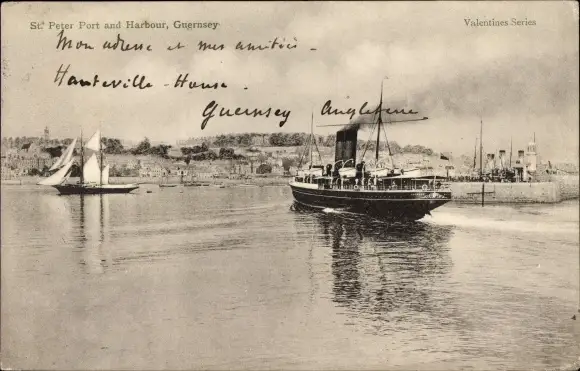 St. Peter Port and Harbour, Guernsey
Valentines Series
Mon adresse et mes amitiés -
Hauteville - House -
Guernsey Angleterre